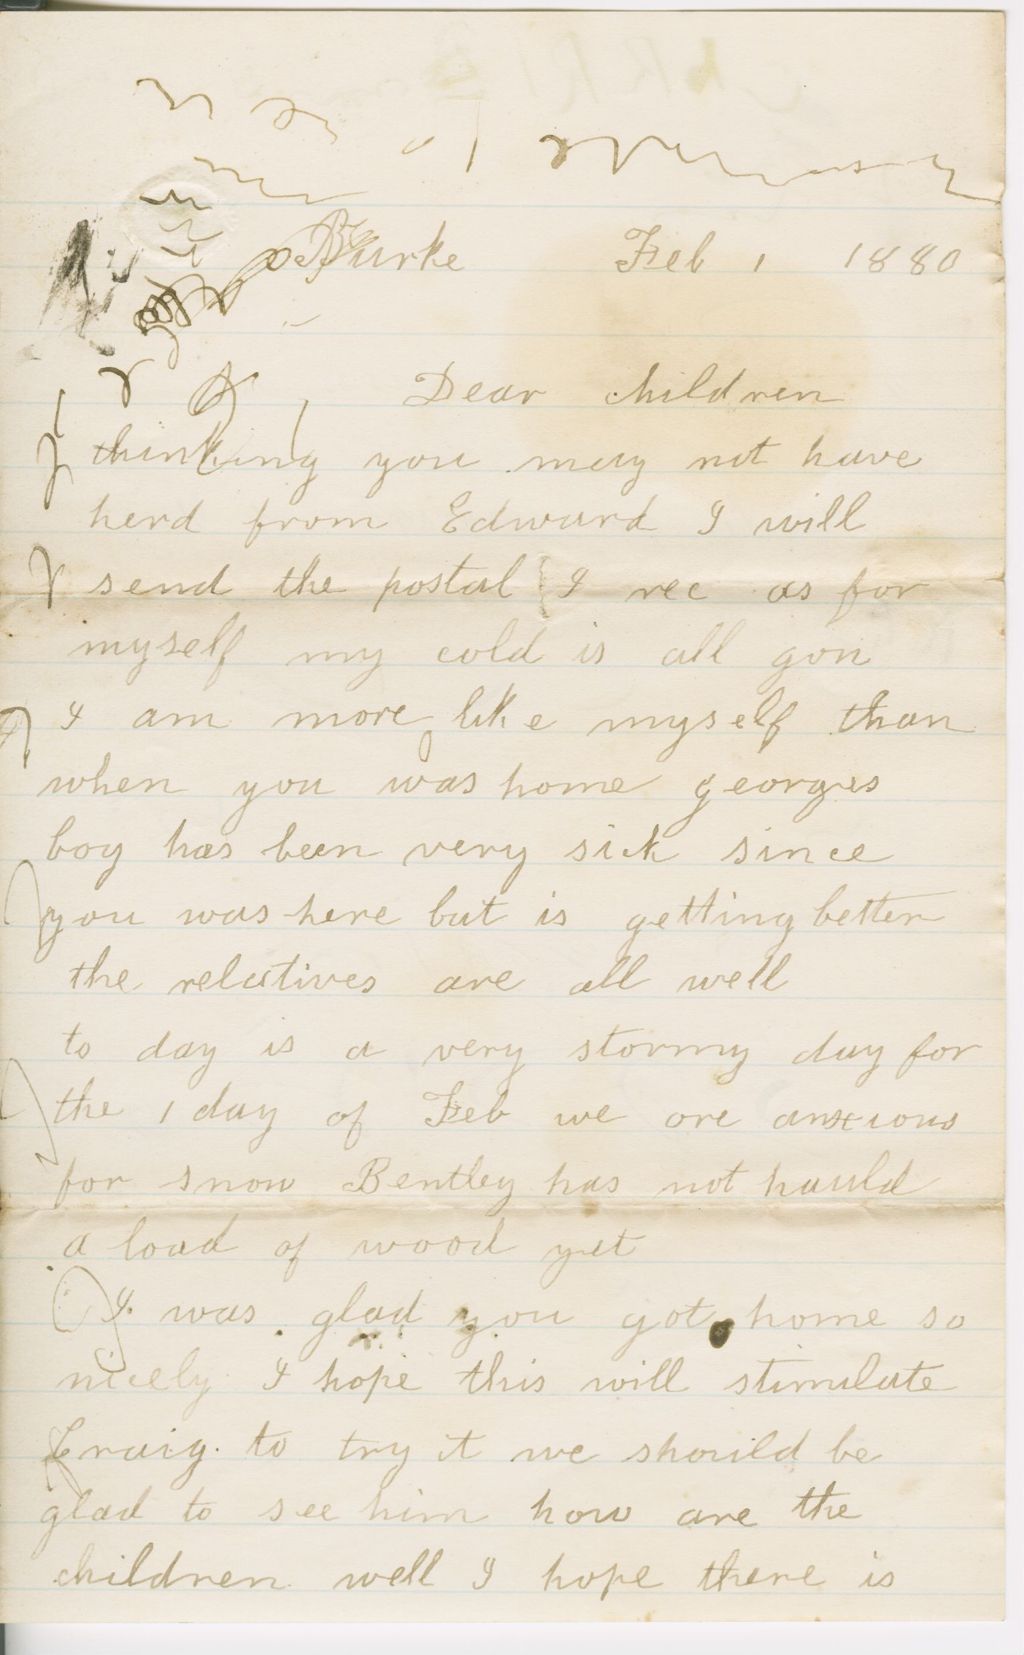 Burke Feb 1 1880
Dear children
thinking you may not have
herd from Edward I will
send the postal I rec as for
myself my cold is all gon
I am more like myself than
when you was home georges
boy has been very sick since
you was here but is getting better
the relatives are all well
to day is a very stormy day for
the 1 day of Feb we are anxious
for snow Bentley has not hauld
a load of wood yet
I was glad you got home so
nicely I hope this will stimulate
Craig. to try it we should be
glad to see him how are the
children well I hope there is